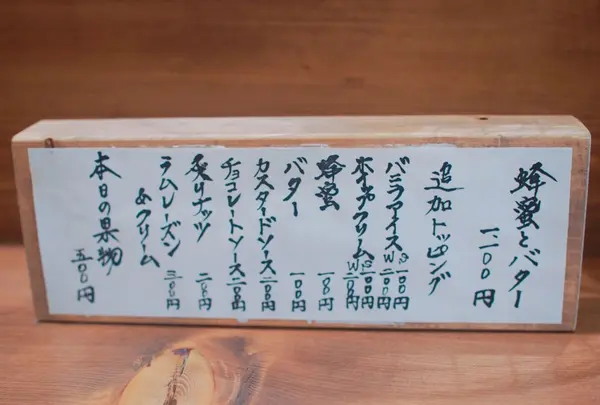 蜂蜜とバター
一二〇〇円
追加トッピング
バニラアイス S 一〇〇円
W 二〇〇円
ホイップクリーム S 一〇〇円
W 二〇〇円
蜂蜜 一〇〇円
バター 一〇〇円
カスタードソース 二〇〇円
チョコレートソース 二〇〇円
炙りナッツ 二〇〇円
ラムレーズン
&クリーム 三〇〇円
本日の果物
五〇〇円